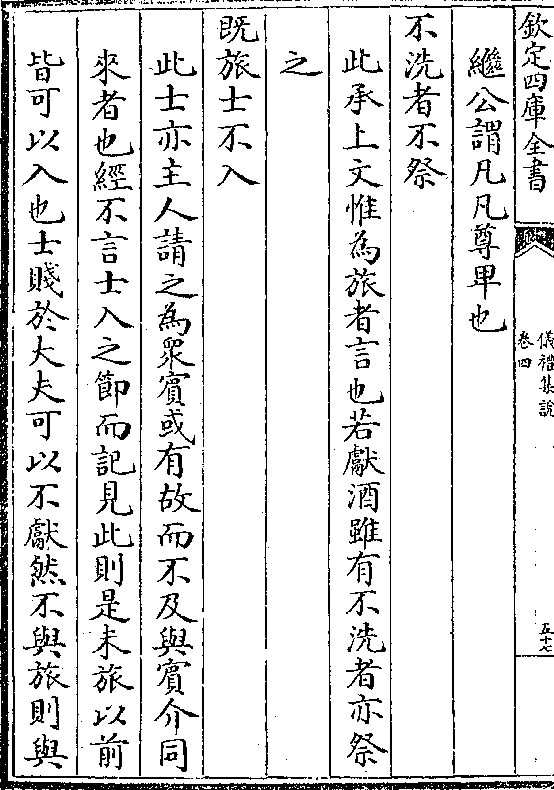 欽定四庫全書
儀禮集說
卷四
五十七
繼公謂凡凡尊卑也
不洗者不祭
此承上文惟為旅者言也若獻酒雖有不洗者亦祭
之
既旅士不入
此士亦主人請之為衆賓或有故而不及與賓介同
來者也經不言士入之節而記見此則是未旅以前
皆可以入也士賤於大夫可以不獻然不與旅則與